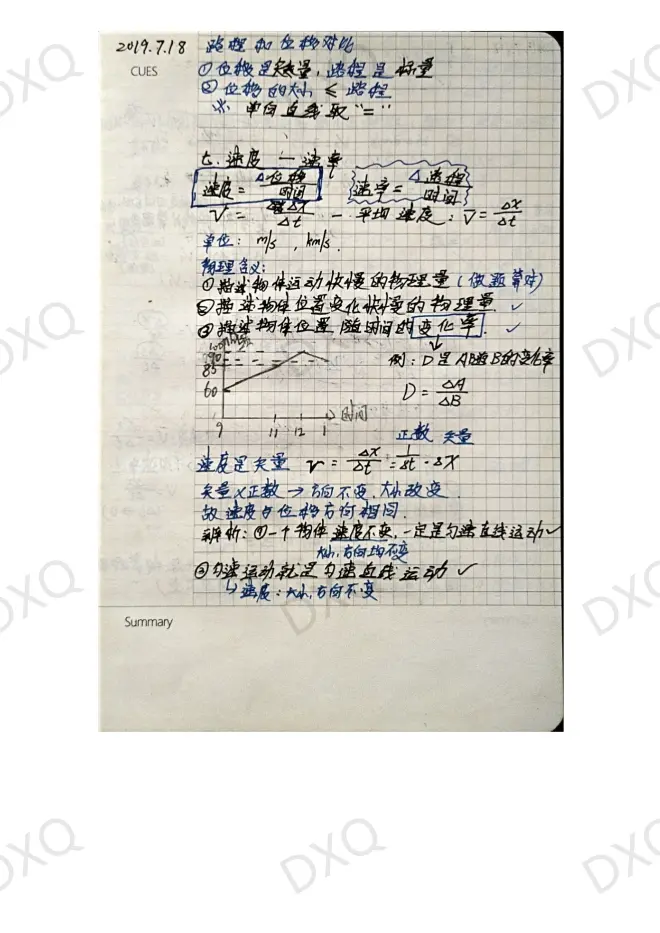 2019.7.18 路程和位移对比
CUES
①位移是矢量,路程是标量
②位移的大小 ≤ 路程
※ 单向直线取“=”
七.速度 — 速率
速度 = △位移/时间 速率 = △路程/时间
V = △X/△t — 平均速度:V̄ = △X/△t
单位:m/s,km/s.
物理含义:
①描述物体运动快慢的物理量(做题算对)
②描述物体位置变化快慢的物理量 ✓
③描述物体位置随时间的变化率. ✓
90
85
60
例:D是A随B的变化率
D = △A/△B
9 11 12 1 时间
正数 矢量
速度是矢量 V = △X/△t = 1/△t · △X
矢量×正数 → 方向不变,大小改变.
故速度与位移方向相同.
辨析:①一个物体速度不变,一定是匀速直线运动 ✓
大小,方向均不变
②匀速运动就是匀速直线运动 ✓
↳速度:大小,方向不变
Summary
DXQ